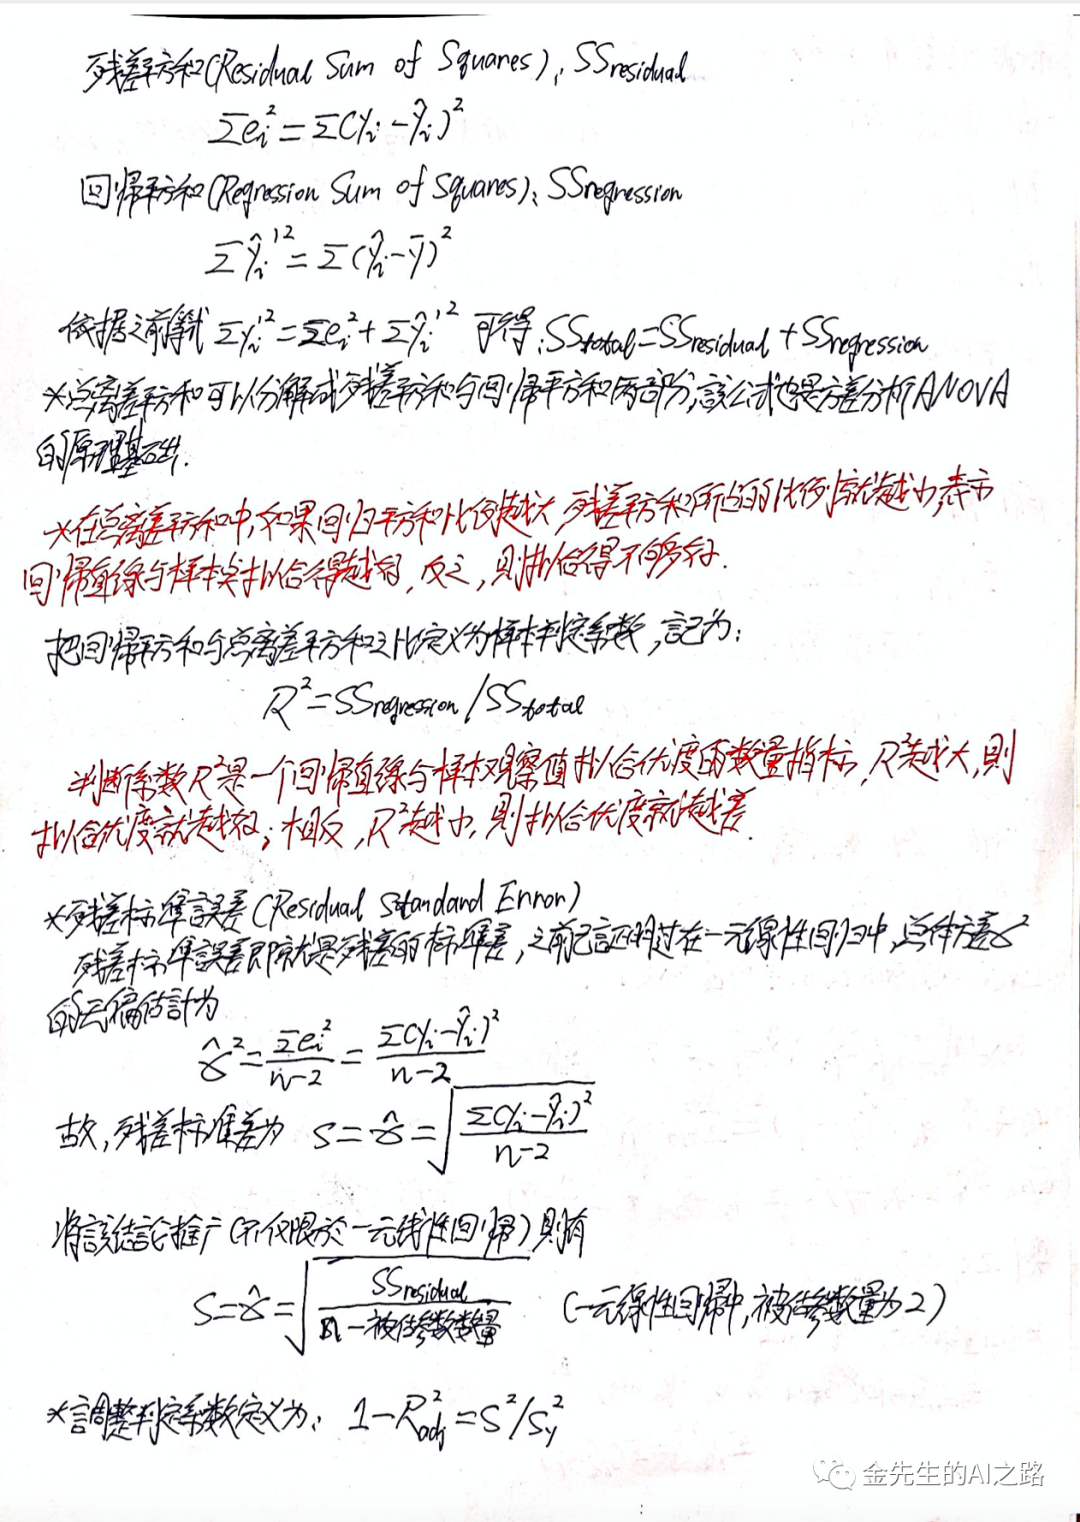 残差平方和(Residual Sum of Squares): SSresidual
Σeᵢ² = Σ(yᵢ - ŷᵢ)²
回帰平方和(Regression Sum of Squares): SSregression
Σŷᵢ'² = Σ(ŷᵢ - ȳ)²
依据之前等式 Σyᵢ'² = Σeᵢ² + Σŷᵢ'² 可得: SStotal = SSresidual + SSregression
*总离差平方和可以分解成残差平方和与回帰平方和两部分,該公式也是方差分析ANOVA
的原理基础.
*在总离差平方和中,如果回归平方和比例越大,残差平方和所占的比例就越小,表示
回帰直線与样本点拟合得越好,反之,則拟合得不够好.
把回帰平方和与总离差平方和之比定义为样本判定系数,記为:
R² = SSregression / SStotal
判断系数R²是一个回帰直線与样本观察值拟合优度的数量指标,R²越大,則
拟合优度就越好;相反,R²越小,則拟合优度就越差.
*残差标準誤差(Residual Standard Error)
残差标準誤差即就是残差的标準差,之前已証明过在一元線性回归中,总体方差σ²
的无偏估計为
σ̂² = Σeᵢ²/(n-2) = Σ(yᵢ - ŷᵢ)²/(n-2)
故,残差标准差为 S = σ̂ = √(Σ(yᵢ - ŷᵢ)²/(n-2))
将該結論推广(不仅限於一元线性回帰)則有
S = σ̂ = √(SSresidual/(n-被估参数数量)) (一元線性回帰中,被估参数量为2)
*調整判定系数定义为: 1 - R²adj = S²/Sy²
金先生的AI之路